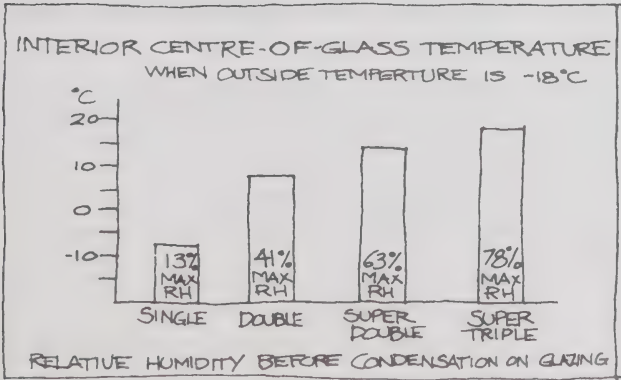 INTERIOR CENTRE-OF-GLASS TEMPERATURE
WHEN OUTSIDE TEMPERTURE IS -18°C
°C
20
10
0
-10
13% MAX RH
41% MAX RH
63% MAX RH
78% MAX RH
SINGLE
DOUBLE
SUPER DOUBLE
SUPER TRIPLE
RELATIVE HUMIDITY BEFORE CONDENSATION ON GLAZING